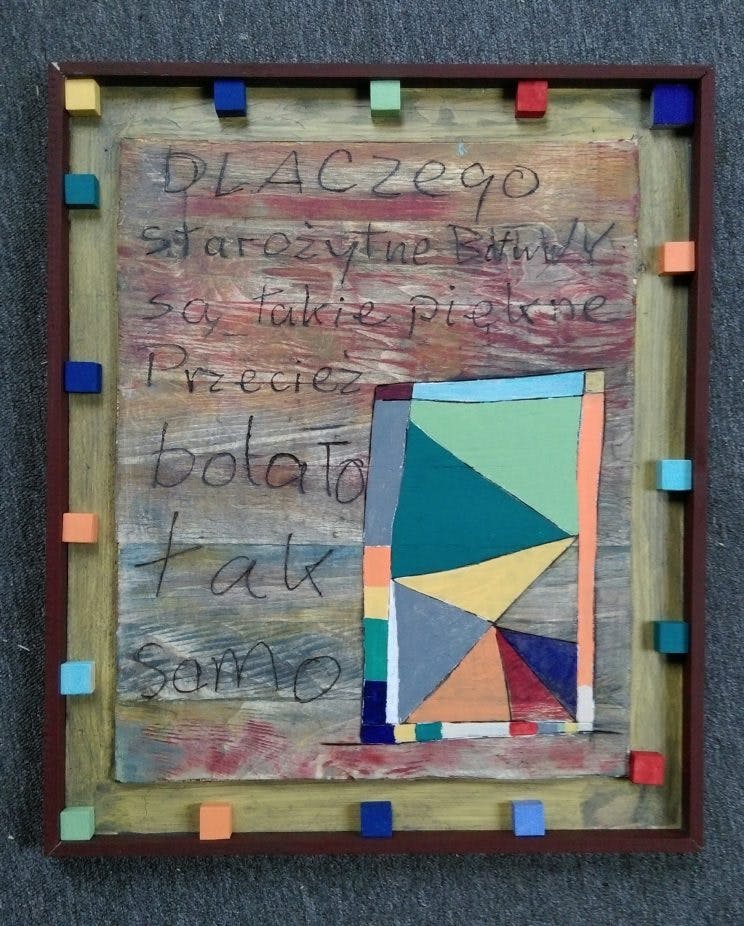 DLACzego
starożytne BitwY
są takie piękne
Przecież
bolało
tak
samo